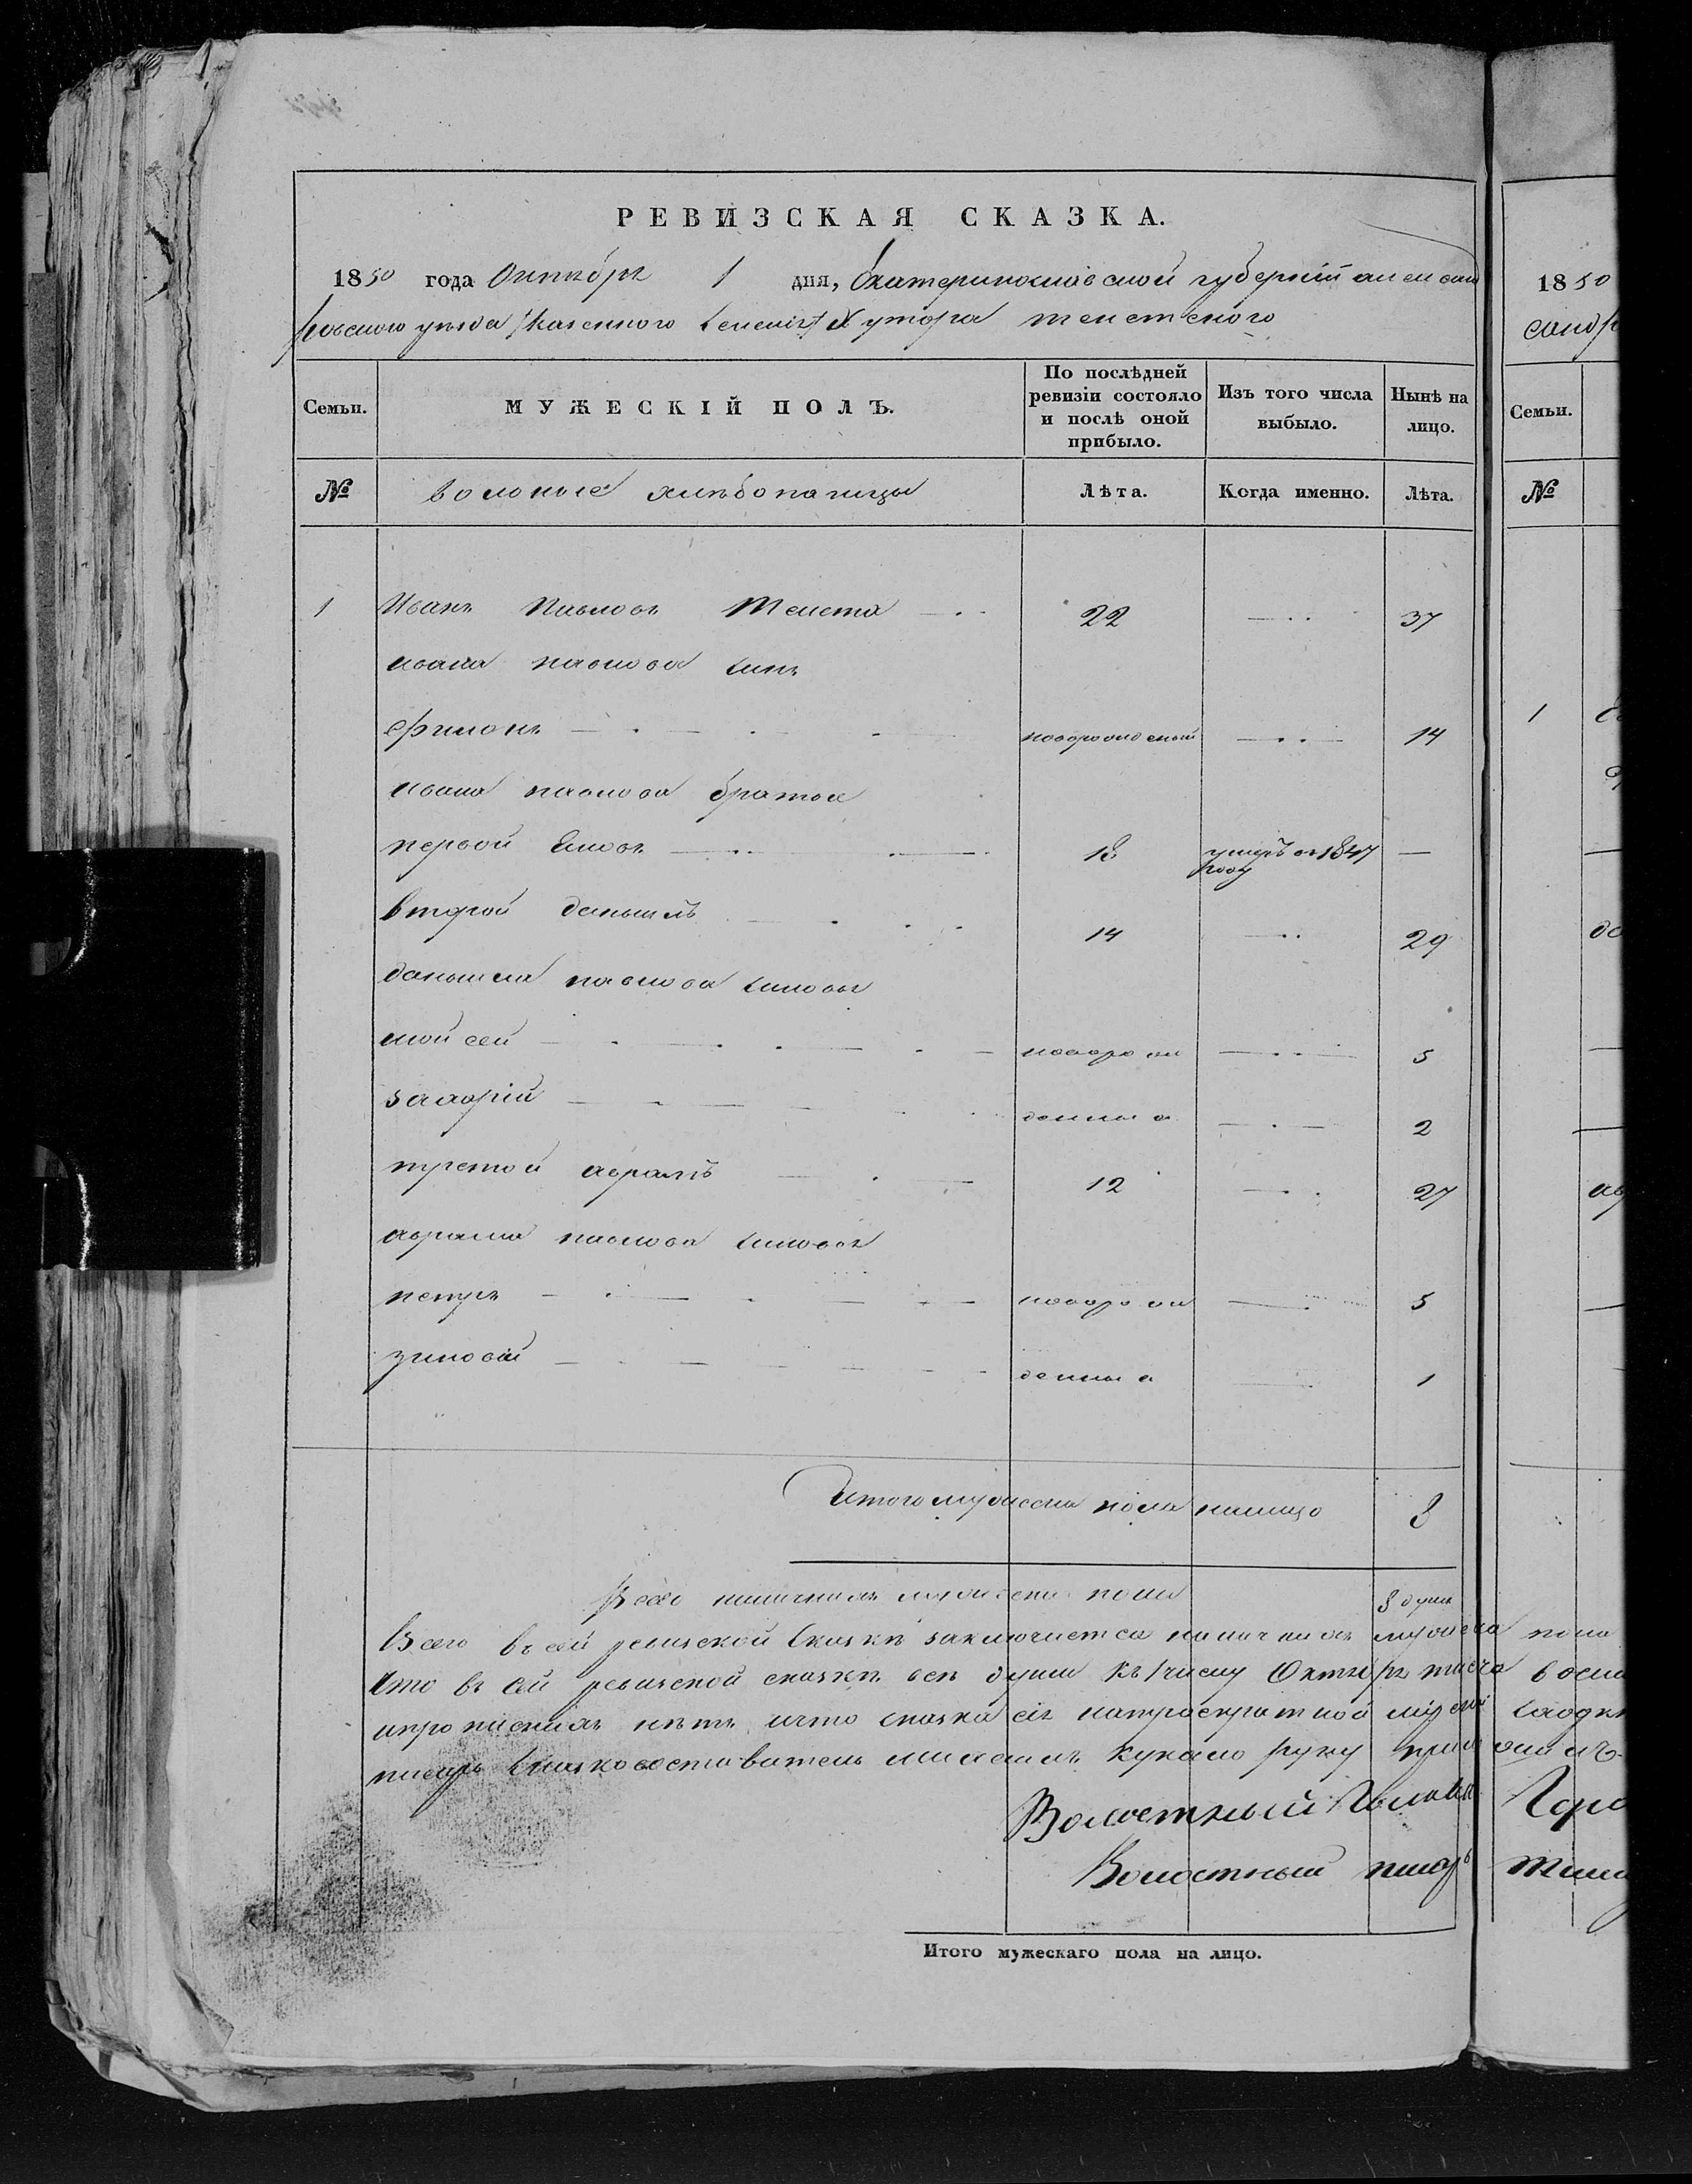 РЕВИЗСКАЯ СКАЗКА.
1850 года Октября 1 дня, Екатеринославской губерніи александ
ровского уезда казенного Хутора телетского
Семьи. МУЖЕСКІЙ ПОЛЪ. По послѣдней ревизіи состояло и послѣ оной прибыло. Изъ того числа выбыло. Нынѣ на лицо.
№ вольные хлѣбопашцы Лѣта. Когда именно. Лѣта.
1 Иванъ Павловъ Телета 22 37
ивана павлова синъ
филонъ новорожденый 14
ивана павлова братья
первой Яковъ 18 умеръ въ 1847 году —
второй данылъ 14 29
даныла павлова синовья
мойсей новорож 5
захарій денныя 2
третой аврамъ 12 27
аврама павлова синовья
петръ новорож 5
зиновій денныя 1
Итого мужеска пола налицо 8
Всего наличныхъ мужеска пола 8 душъ
Всего въ сей ревиской Сказки заключается наличныхъ мужеска пола
Что въ сей ревизской сказкѣ все души къ числу Октября
и прописныхъ нетъ и что сказка сія
писарь Сказкосоставитель руку
Волостный Голова
Волостный писарь
Итого мужескаго пола на лицо.
1850
Семьи.
№
1